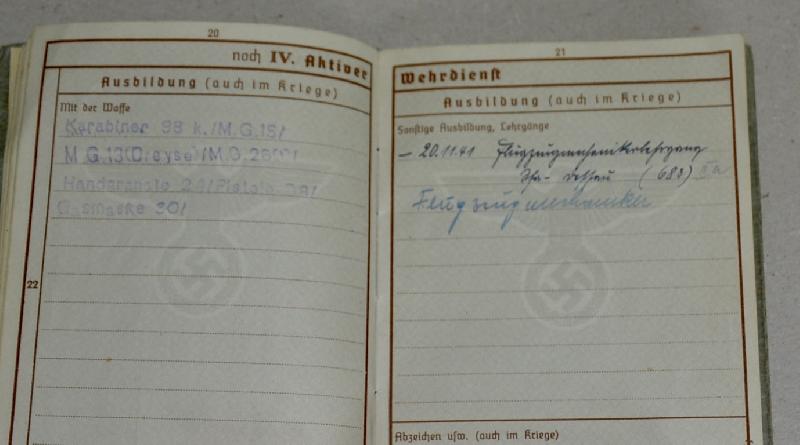 20
noch IV. Aktiver
Ausbildung (auch im Kriege)
Mit der Waffe
Karabiner 98 k./M.G.15/
M G.13(Dreyse)/M.G.
Handgranate 24/Pistole 08/
Gasmaske 30/
22
21
Wehrdienst
Ausbildung (auch im Kriege)
Sonstige Ausbildung, Lehrgänge
– 20.11.41 Flugzeugmechanikerlehrgang
Dessau (683)
Flugzeugmechaniker
Abzeichen usw. (auch im Kriege)